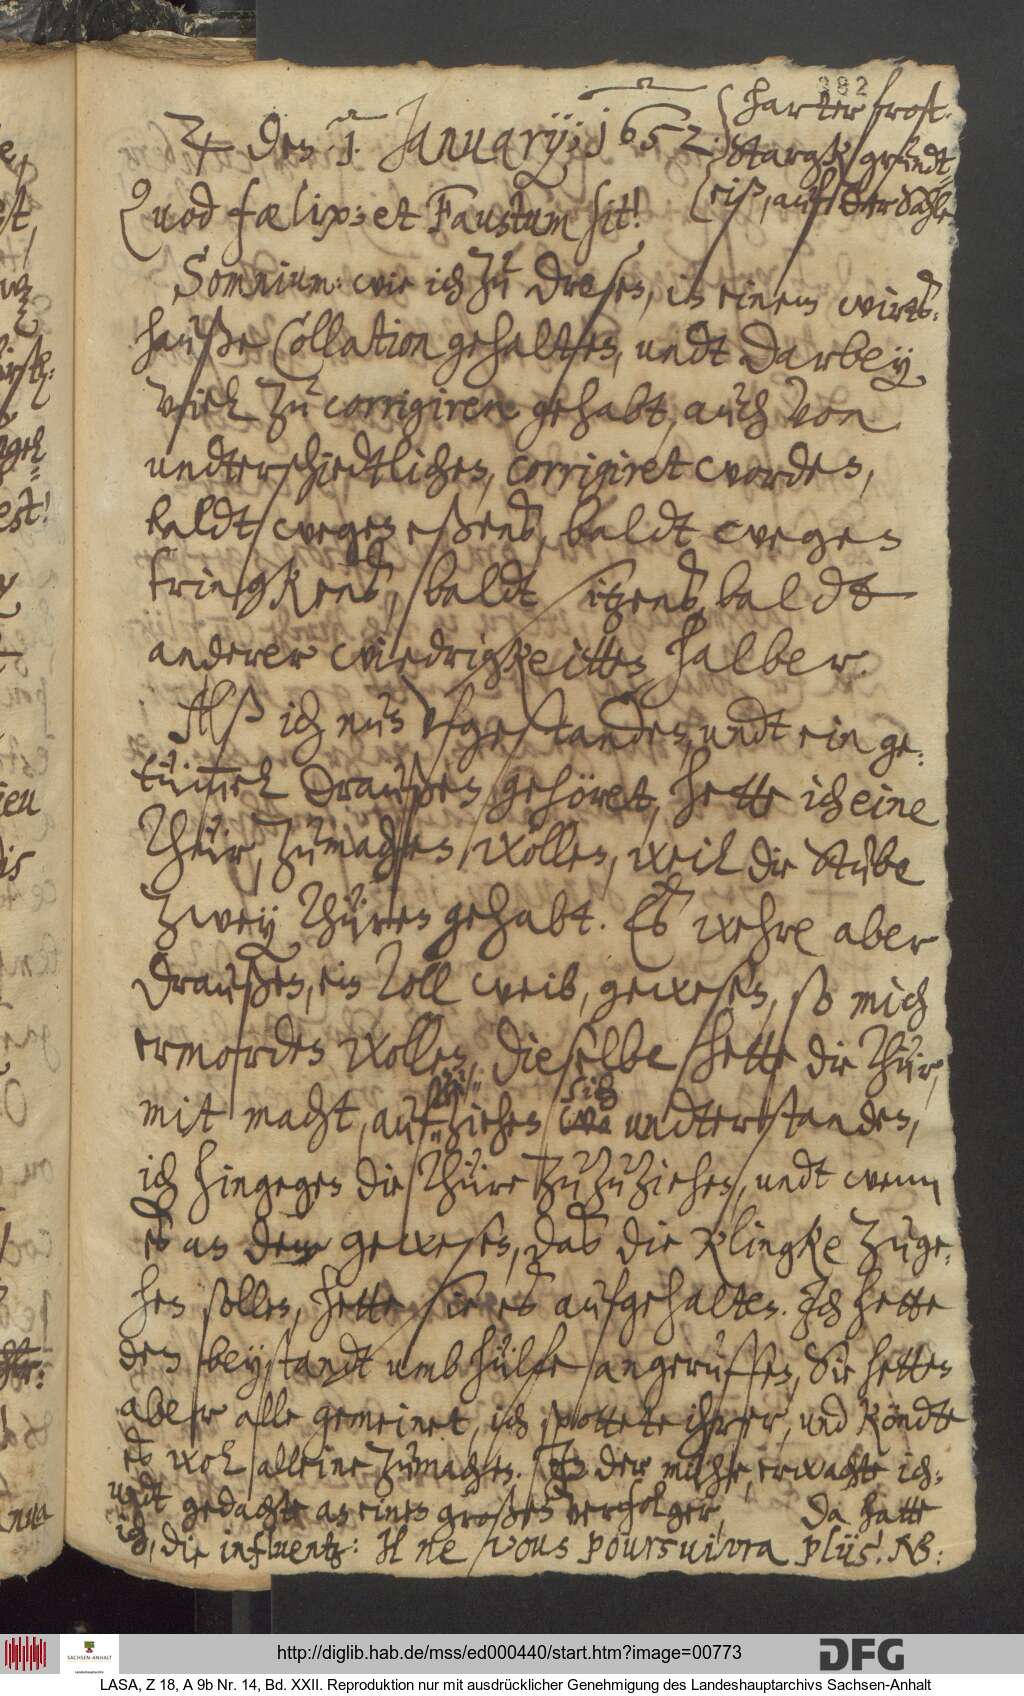 382
♃ den 1. January: 1652.
{ harter frost.
Starck grundt
eiß, auf der Sahle
Quod fælix: et Faustum sit!
Somnium: wie ich zu Dresen, in einem wirts:
hauße Collation gehalten, undt darbey
viel zu corrigiren gehabt, auch von
undterschiedtlichen, corrigiret worden,
baldt wegen eßens, baldt wegen
trinckens, baldt sitzens, baldt
anderer wiedrigkeitten halber.
Alß ich nun ufgestanden, undt ein ge:
tümmel draußen gehöret, hette ich eine
Thür, zumachen wollen, weil die Stube
zwey Thüren gehabt. Es wehre aber
draußen, ein toll weib, gewesen, so mich
ermorden wollen, dieselbe hette die Thür,
mit macht, aufziehen sich undterstanden,
ich hingegen die Thüre zuzuziehen, undt wenn
es an dem gewesen, das die klingke zuge:
hen sollen, hette sie es aufgehalten. Ich hette
den beystandt umb hülfe angeruffen, Sie hetten
aber alle gemeinet, ich spottete ihrer, und köndte
es wol alleine zumachen. In der mühe, erwachte ich:
undt gedachte an einen großen verfolger, Da hatte
ich, die influentz: Il ne vous poursuivra plus! NB:
http://diglib.hab.de/mss/ed000440/start.htm?image=00773
SACHSEN-ANHALT
DFG
LASA, Z 18, A 9b Nr. 14, Bd. XXII. Reproduktion nur mit ausdrücklicher Genehmigung des Landeshauptarchivs Sachsen-Anhalt